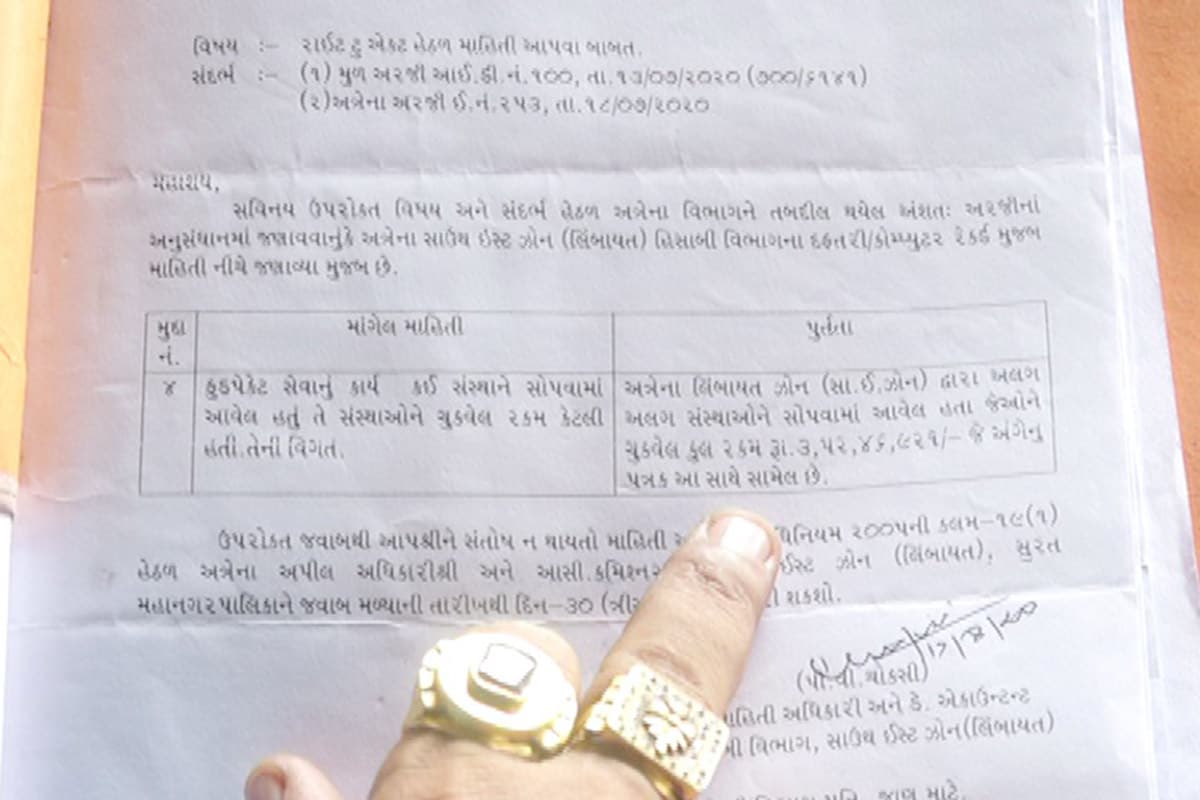 વિષય :- રાઈટ ટુ એક્ટ હેઠળ માહિતી આપવા બાબત.
સંદર્ભ :- (૧) મુળ અરજી આઈ.ડી.નં.૧૦૦, તા.૧૩/૦૭/૨૦૨૦ (૭૦૦/૬૧૪૧)
(૨)અત્રેના અરજી ઈ.નં.૨૫૩, તા.૧૮/૦૭/૨૦૨૦
મહાશય,
સવિનય ઉપરોકત વિષય અને સંદર્ભ હેઠળ અત્રેના વિભાગને તબદીલ થયેલ અંશતઃ અરજીનાં
અનુસંધાનમાં જણાવવાનુંકે અત્રેના સાઉથ ઇસ્ટ ઝોન (લિંબાયત) હિસાબી વિભાગના દફતરી/કોમ્પ્યુટર રેકર્ડ મુજબ
માહિતી નીચે જણાવ્યા મુજબ છે.
મુદ્દા માંગેલ માહિતી પુર્તતા
નં.
૪ ફુડપેકેટ સેવાનું કાર્ય કઈ સંસ્થાને સોપવામાં
આવેલ હતું તે સંસ્થાઓને ચુકવેલ રકમ કેટલી
હતી.તેની વિગત.
અત્રેના લિંબાયત ઝોન (સા.ઈ.ઝોન) દ્વારા અલગ
અલગ સંસ્થાઓને સોપવામાં આવેલ હતા જેઓને
ચુકવેલ કુલ રકમ રૂા.૩,૫૨,૪૬,૯૨૧/- જે અંગેનુ
પત્રક આ સાથે સામેલ છે.
ઉપરોકત જવાબથી આપશ્રીને સંતોષ ન થાયતો માહિતી વિનિયમ ૨૦૦૫ની કલમ-૧૯(૧)
હેઠળ અત્રેના અપીલ અધિકારીશ્રી અને આસી.કમિશ્ન ઈસ્ટ ઝોન (લિંબાયત), સુરત
મહાનગરપાલિકાને જવાબ મળ્યાની તારીખથી દિન-૩૦ શકશો.
(પી.વી.ચોકસી)
માહિતી અધિકારી અને ડે. એકાઉન્ટન્ટ
વિભાગ, સાઉથ ઈસ્ટ ઝોન(લિંબાયત)
જાણ માટે.